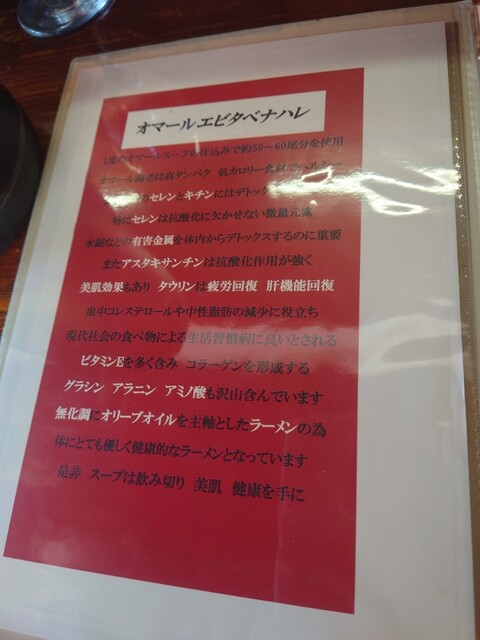 オマールエビタベナハレ
1度のオマールスープの仕込みで約50～60尾分を使用
オマール海老は高タンパク 低カロリー食材でヘルシー
セレンとキチンにはデトックス
特にセレンは抗酸化に欠かせない微量元素
水銀などの有害金属を体内からデトックスするのに重要
またアスタキサンチンは抗酸化作用が強く
美肌効果もあり タウリンは疲労回復 肝機能回復
血中コレステロールや中性脂肪の減少に役立ち
現代社会の食べ物による生活習慣病に良いとされる
ビタミンEを多く含み コラーゲンを形成する
グラシン アラニン アミノ酸も沢山含んでいます
無化調にオリーブオイルを主軸としたラーメンの為
体にとても優しく健康的なラーメンとなっています
是非 スープは飲み切り 美肌 健康を手に